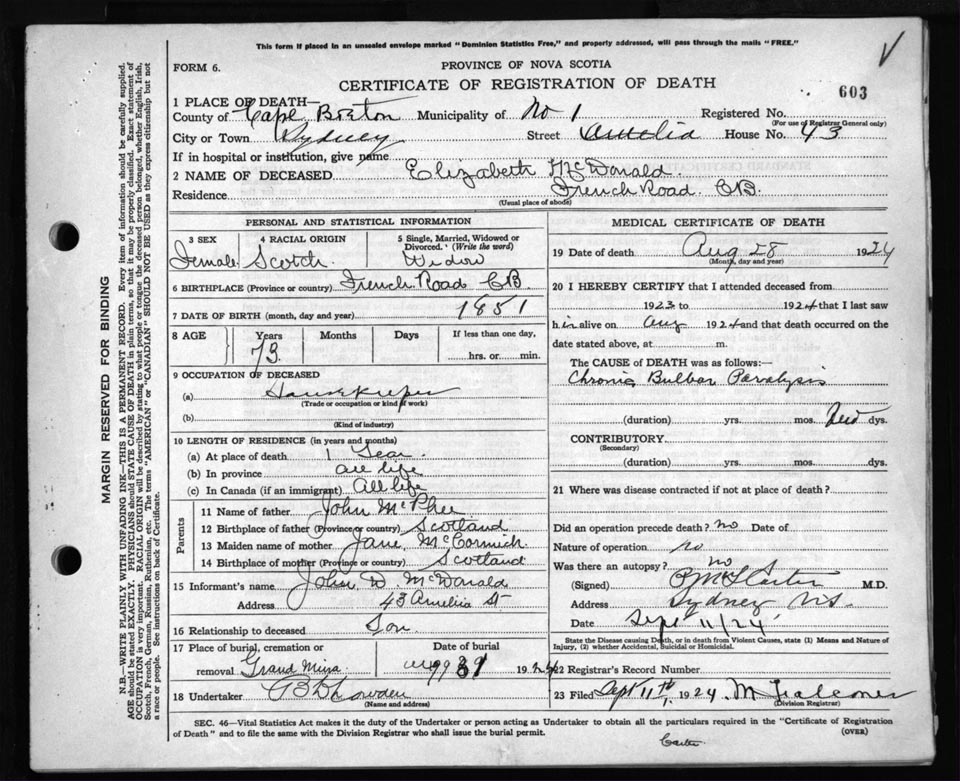 This form if placed in an unsealed envelope marked "Dominion Statistics Free," and properly addressed, will pass through the mails "FREE."
FORM 6.
PROVINCE OF NOVA SCOTIA
CERTIFICATE OF REGISTRATION OF DEATH
603
1 PLACE OF DEATH—
County of Cape Breton Municipality of No 1 Registered No.
(For use of Registrar General only)
City or Town Sydney Street Amelia House No. 43
If in hospital or institution, give name
2 NAME OF DECEASED Elizabeth McDonald.
Residence French Road. CB.
(Usual place of abode)
PERSONAL AND STATISTICAL INFORMATION
3 SEX 4 RACIAL ORIGIN 5 Single, Married, Widowed or Divorced. (Write the word)
Female Scotch Widow
6 BIRTHPLACE (Province or country) French Road CB.
7 DATE OF BIRTH (month, day and year) 1851
8 AGE Years Months Days If less than one day,
73 hrs. or min.
9 OCCUPATION OF DECEASED
(a) Housekeeper
(Trade or occupation or kind of work)
(b)
(Kind of industry)
10 LENGTH OF RESIDENCE (in years and months)
(a) At place of death 1 Year
(b) In province all life
(c) In Canada (if an immigrant) All life
Parents
11 Name of father John McPhee
12 Birthplace of father (Province or country) Scotland
13 Maiden name of mother Jane McCormick
14 Birthplace of mother (Province or country) Scotland
15 Informant's name John D McDonald
Address 43 Amelia St
16 Relationship to deceased Son
17 Place of burial, cremation or removal Grand Mira Date of burial Aug 31 1924
18 Undertaker
(Name and address)
MEDICAL CERTIFICATE OF DEATH
19 Date of death Aug 28 1924
(Month, day and year)
20 I HEREBY CERTIFY that I attended deceased from
1923 to 1924 that I last saw
h is alive on Aug 1924 and that death occurred on the
date stated above, at m.
The CAUSE of DEATH was as follows:
Chronic Bulbar Paralysis
(duration) yrs. mos. dys.
CONTRIBUTORY
(Secondary)
(duration) yrs. mos. dys.
21 Where was disease contracted if not at place of death?
Did an operation precede death? no Date of
Nature of operation no
Was there an autopsy? no
(Signed) M.D.
Address Sydney N.S.
Date Sept 11/24
State the Disease causing Death, or in death from Violent Causes, state (1) Means and Nature of Injury, (2) whether Accidental, Suicidal or Homicidal.
22 Registrar's Record Number
23 Filed Sept 11th 1924 M Falconer
(Division Registrar)
SEC. 46—Vital Statistics Act makes it the duty of the Undertaker or person acting as Undertaker to obtain all the particulars required in the "Certificate of Registration
of Death" and to file the same with the Division Registrar who shall issue the burial permit.
(OVER)
Carter
MARGIN RESERVED FOR BINDING
N.B.—WRITE PLAINLY WITH UNFADING INK—THIS IS A PERMANENT RECORD. Every item of information should be carefully supplied.
AGE should be stated EXACTLY. PHYSICIANS should STATE CAUSE OF DEATH in plain terms, so that it may be properly classified. Exact statement of
OCCUPATION is very important. RACIAL ORIGIN will be described by stating to what people or tongue the deceased person belonged, whether English, Irish,
Scotch, French, German, Russian, Ruthenian, etc. The terms "AMERICAN" or "CANADIAN" SHOULD NOT BE USED as they express citizenship but not
a race or people. See instructions on back of Certificate.